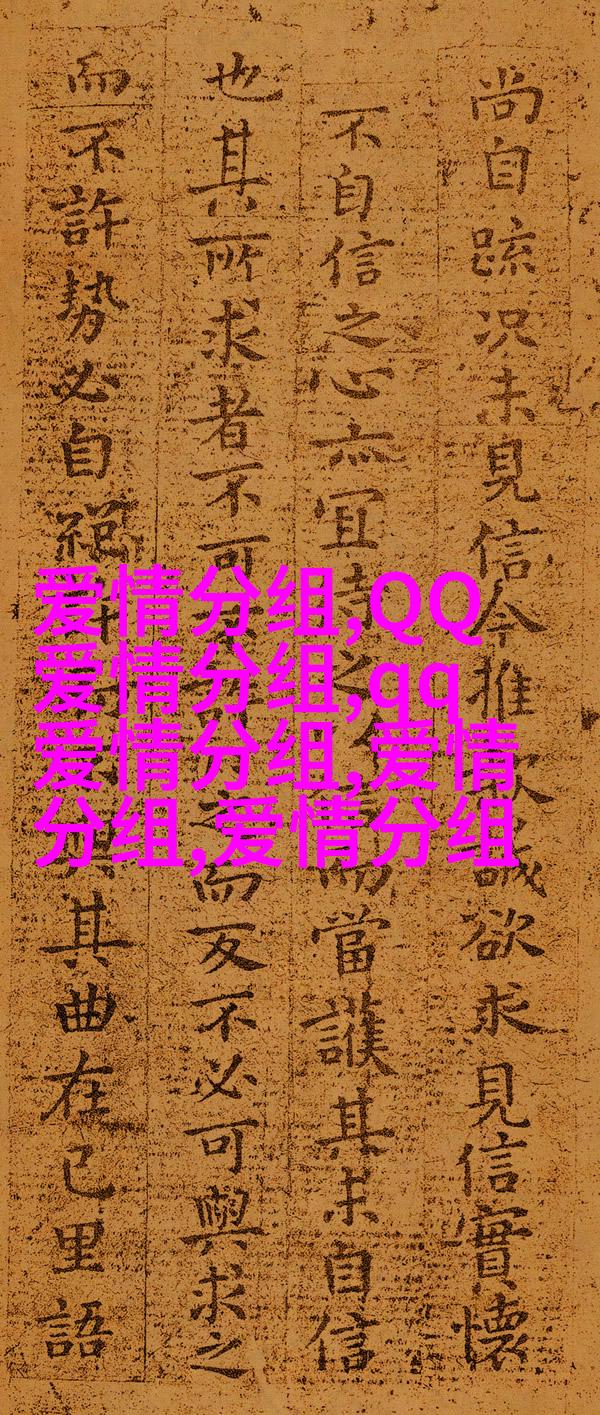 尚自踈況未見信今推誠欲求見信實懷
不自信之心亦宜待之而當護其未自信
也其所求者不可而反不必可與求之
而不許勢必自絕與其曲在己里語
爱情分组,QQ
爱情分组,qq
爱情分组,爱情
分组,爱情分组